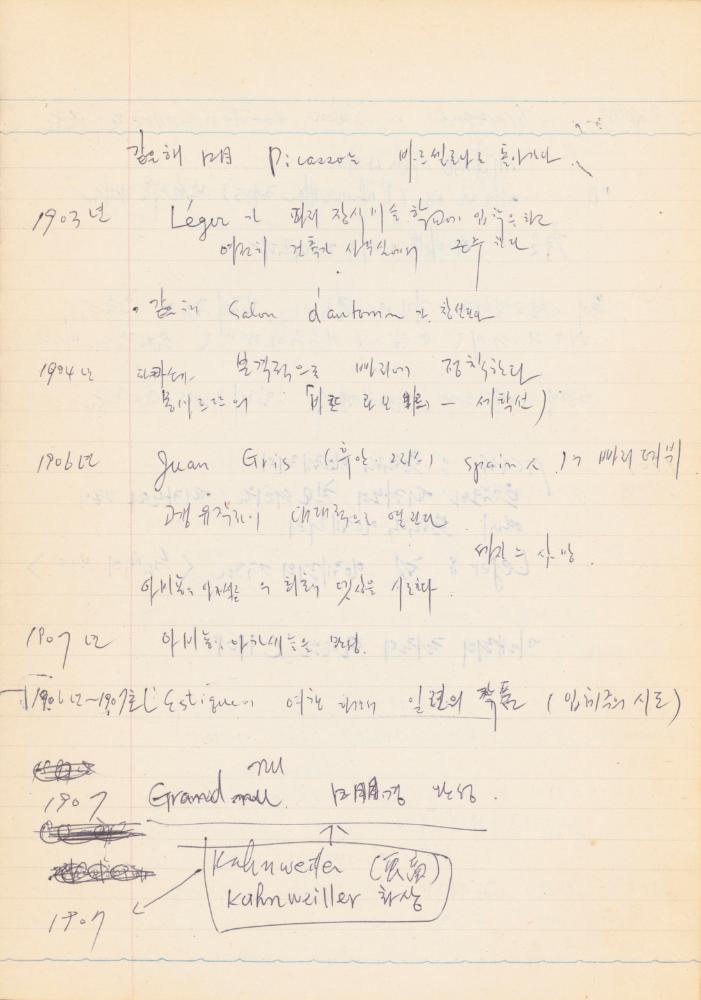 같은해 12月 Picasso는 바르셀로나로 돌아가다.
1903년 Léger가 파리 장식미술 학교에 입학을 하고
여전히 건축가 사무실에서 근무한다
같은해 Salon d'automn가 창설되다
1904년 피카소 본격적으로 빠리에 정착한다
몽마르트의 세탁선)
1906년 Juan Gris (후안 그리스) Spain에서 빠리 데뷔
유작전이 대대적으로 열린다
세잔느 사망.
아비뇽의 아가씨들의 최초의 뎃상을 시도하다.
1907년 아비뇽의 아가씨들을 완성.
1906년~1907초 L'Estaque에 여행 일련의 작품 (입체주의 시도)
1907 Grand 12月경 완성.
Kahnweiler (画商)
Kahnweiller 화상
1907